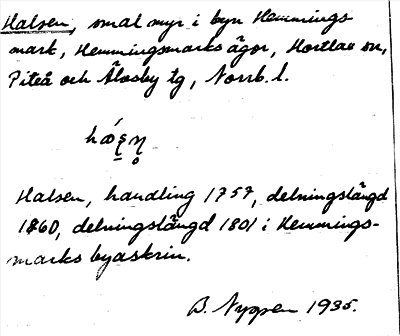 Halsen, smal myr i byn Hemmings
mark, Hemmingsmarks ägor, Hortlax sn,
Piteå och Älvsby tg, Norrb. l.
Halsen, handling 1757, delningslängd
1860, delningslängd 1801 i Hemmings-
marks byaskrin.
B. Nygren 1935.